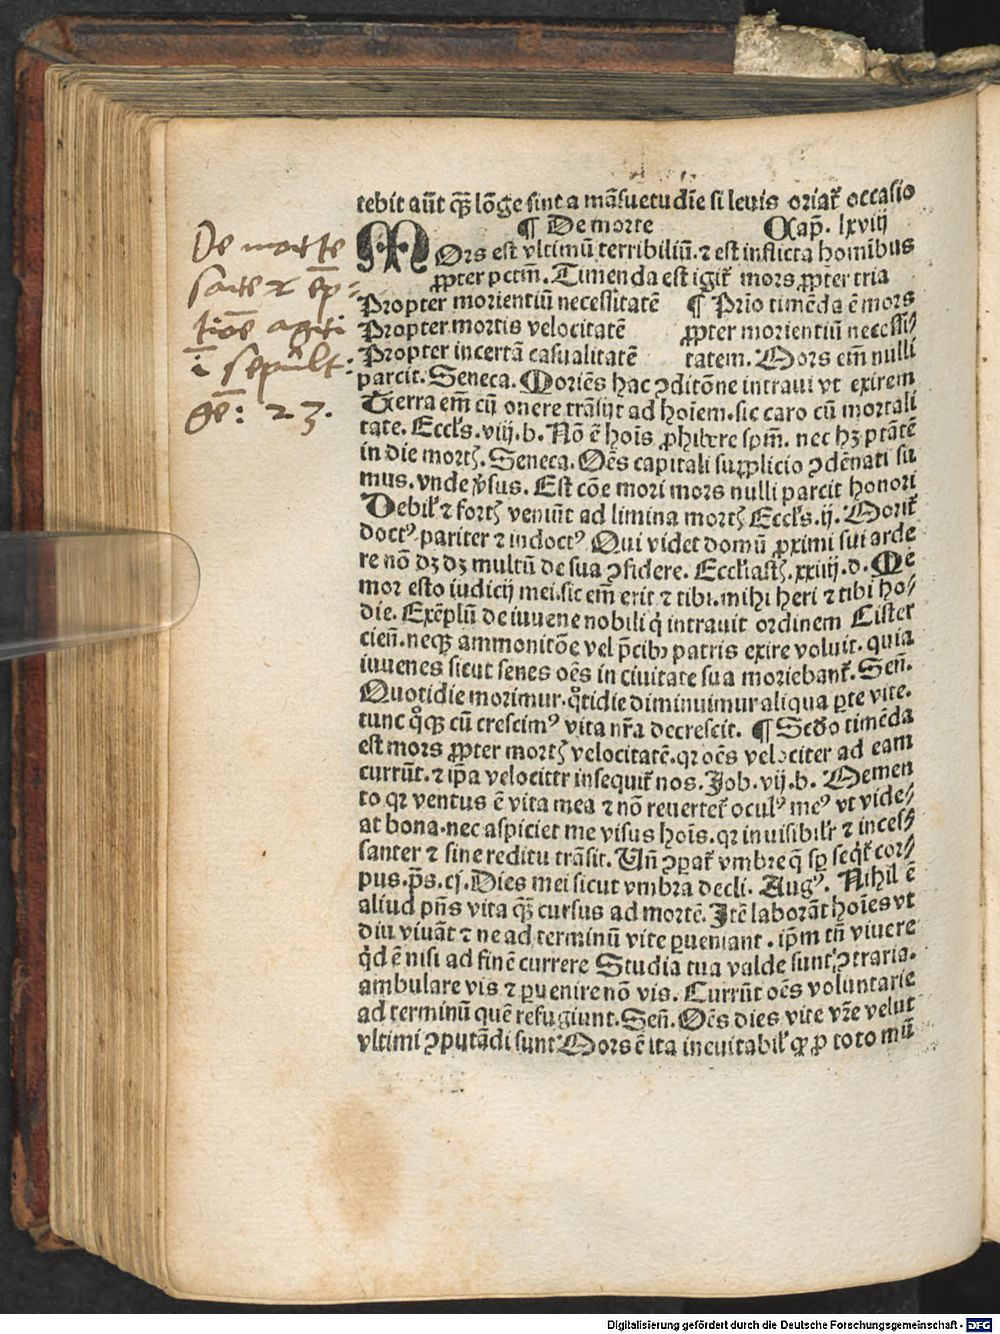 tebit aūt qꝫ lōge sint a māsuetudīe si leuis oriat᷑ occasio
¶ De morte Cap̄. lxviij
MOrs est vltimū terribiliū. ⁊ est inflicta homībus
ꝓpter pctm̄. Timenda est igit᷑ mors ꝓpter tria
Propter morientiū necessitatē ¶ Prīo timēda ē mors
Propter mortis velocitatē ꝓpter morientiū necessi/
Propter incertā casualitatē tatem. Mors em̄ nulli
parcit. Seneca. Moriēs hac ꝯditōne intraui vt exirem
Terra em̄ cū onere trāsijt ad hoīem. sic caro cū mortali
tate. Eccl's. viij. b. Nō ē hoīs ꝓhibere spm̄. nec hꝫ ptātē
in die mortꝭ. Seneca. Oēs capitali supplicio ꝯdēnati su
mus. vnde ꝟsus. Est cōe mori mors nulli parcit honori
Debil' ⁊ fortꝭ veniūt ad limina mortꝭ Eccl's. ij. Morit᷑
doctꝰ pariter ⁊ indoctꝰ Qui videt domū ꝓximi sui arde
re nō dꝫ dꝫ multū de sua ꝯfidere. Eccl'iastꝭ. xxiiij. d. Me
mor esto iudicij mei. sic em̄ erit ⁊ tibi. mihi heri ⁊ tibi ho/
die. Exēplū de iuuene nobili q̇ intrauit ordinem Cister
cien̄. neqꝫ ammonitōe vel p̄cibꝰ patris exire voluit. quia
iuuenes sicut senes oēs in ciuitate sua moriebant᷑. Sen̄.
Quotidie morimur. q̊tidie diminuimur aliqua ꝑte vite.
tunc q̊qꝫ cū crescimꝰ vita nr̄a decrescit. ¶ Scd̄o timēda
est mors ꝓpter mortꝭ velocitatē. qꝛ oēs velociter ad eam
currūt. ⁊ ip̄a velociter insequit᷑ nos. Job. vij. b. Memen
to qꝛ ventus ē vita mea ⁊ nō reuertet᷑ oculꝰ meꝰ vt vide/
at bona. nec aspiciet me visus hoīs. qꝛ inuisibilr̄ ⁊ inces/
santer ⁊ sine reditu trāsit. Un̄ ꝯꝑat᷑ vmbre q̄ sp̄ seq̇t᷑ cor/
pus. ps̄. cj. Dies mei sicut vmbra decli. Augꝰ. Nihil ē
aliud pn̄s vita qꝫ cursus ad mortē. Itē laborāt hoīes vt
diu viuāt ⁊ ne ad terminū vite ꝑueniant. ip̄m tn̄ viuere
q̇d ē nisi ad finē currere Studia tua valde sunt ꝯtraria.
ambulare vis ⁊ ꝑuenire nō vis. Currūt oēs voluntarie
ad terminū quē refugiunt. Sen̄. Oēs dies vite vr̄e velut
vltimi ꝯputādi sunt Mors ē ita ineuitabil' ꝙ ꝓ toto mū
De morte
sare ⁊ ēp
tiōe agri
ī sepult:
gē: 23.
Digitalisierung gefördert durch die Deutsche Forschungsgemeinschaft - DFG